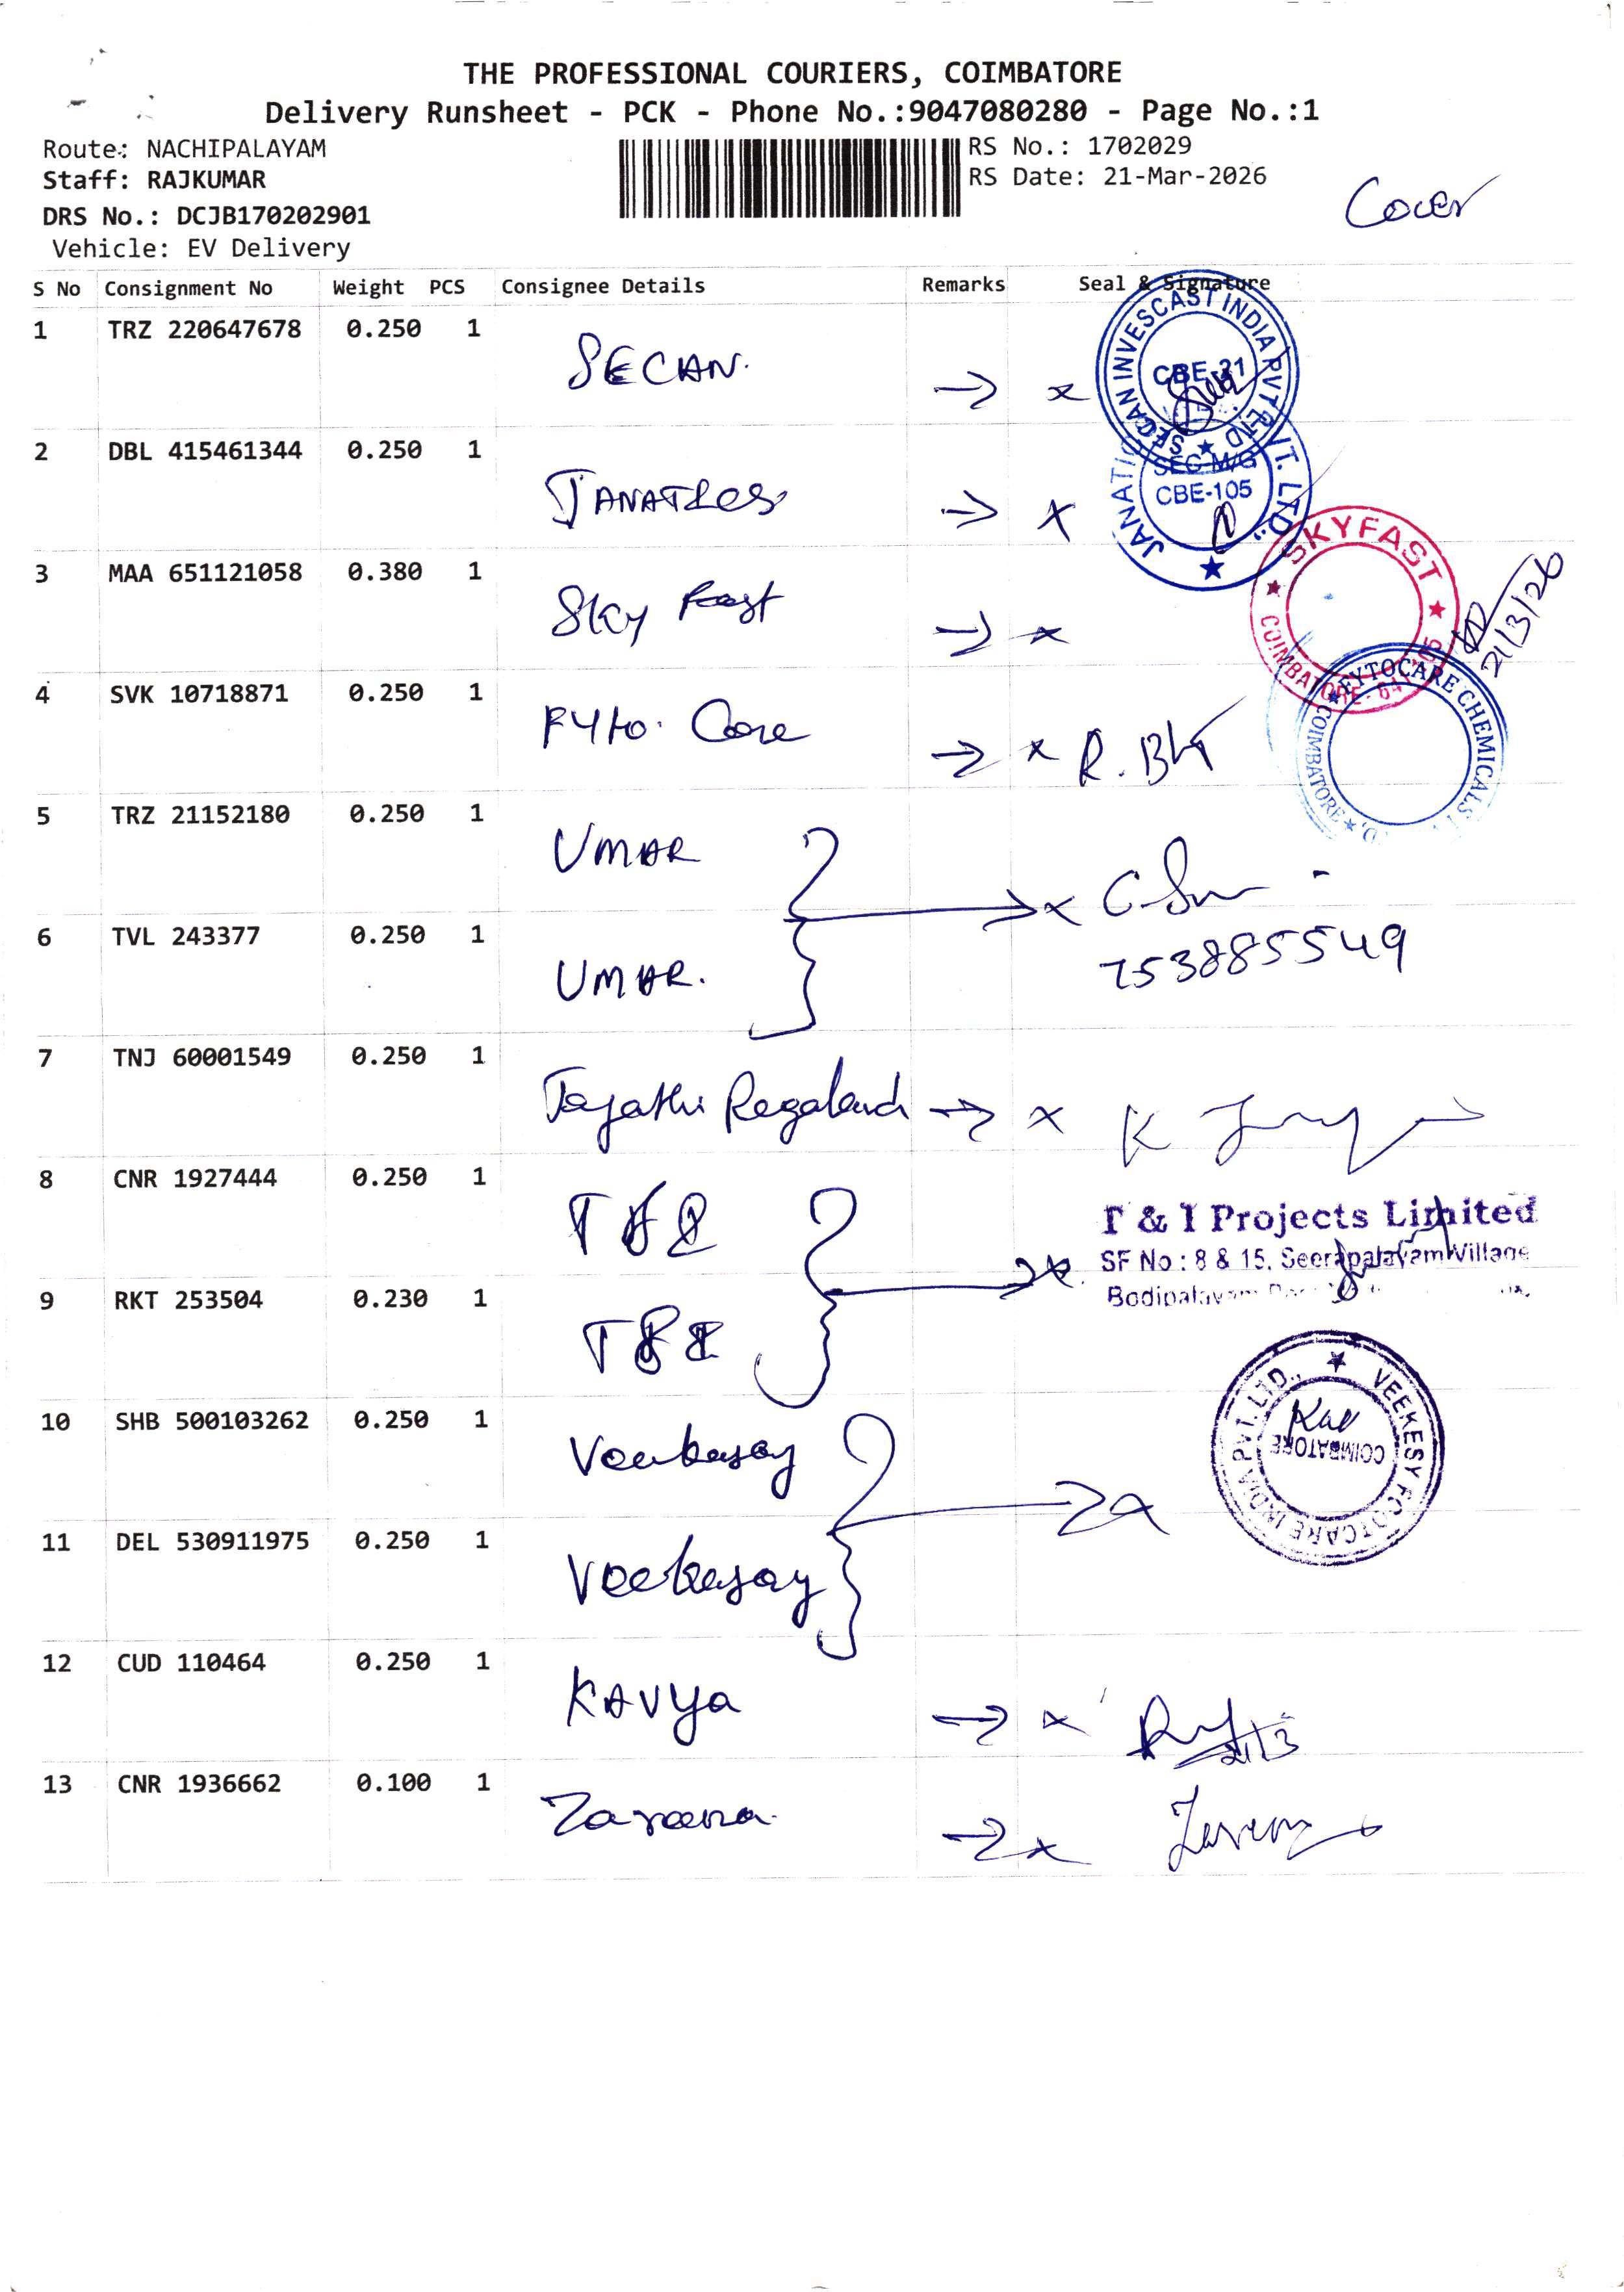 THE PROFESSIONAL COURIERS, COIMBATORE
Delivery Runsheet - PCK - Phone No.:9047080280 - Page No.:1
Route: NACHIPALAYAM
RS No.: 1702029
Staff: RAJKUMAR
RS Date: 21-Mar-2026
Cover
DRS No.: DCJB170202901
Vehicle: EV Delivery
S No Consignment No Weight PCS Consignee Details Remarks Seal & Signature
1 TRZ 220647678 0.250 1 SECAN.
SECAN INVESCAST INDIA PVT LTD
CBE-21
2 DBL 415461344 0.250 1 JANATICS
CBE-105
3 MAA 651121058 0.380 1 Sky Fast
SKYFAST
COIMBATORE
21/3/26
4 SVK 10718871 0.250 1 Fyto Care
FYTOCARE CHEMICALS
COIMBATORE
5 TRZ 21152180 0.250 1 UMAR
6 TVL 243377 0.250 1 UMAR.
753885549
7 TNJ 60001549 0.250 1
8 CNR 1927444 0.250 1 T&I
T & I Projects Limited
SF No : 8 & 15, Seerapalayam Village
Bodipalayam
9 RKT 253504 0.230 1 T&I
10 SHB 500103262 0.250 1 Veekesay
VEEKESY FOOTCARE INDIA PVT. LTD.,
COIMBATORE
11 DEL 530911975 0.250 1 Veekesay
12 CUD 110464 0.250 1 KAVYA
13 CNR 1936662 0.100 1 Zareena.